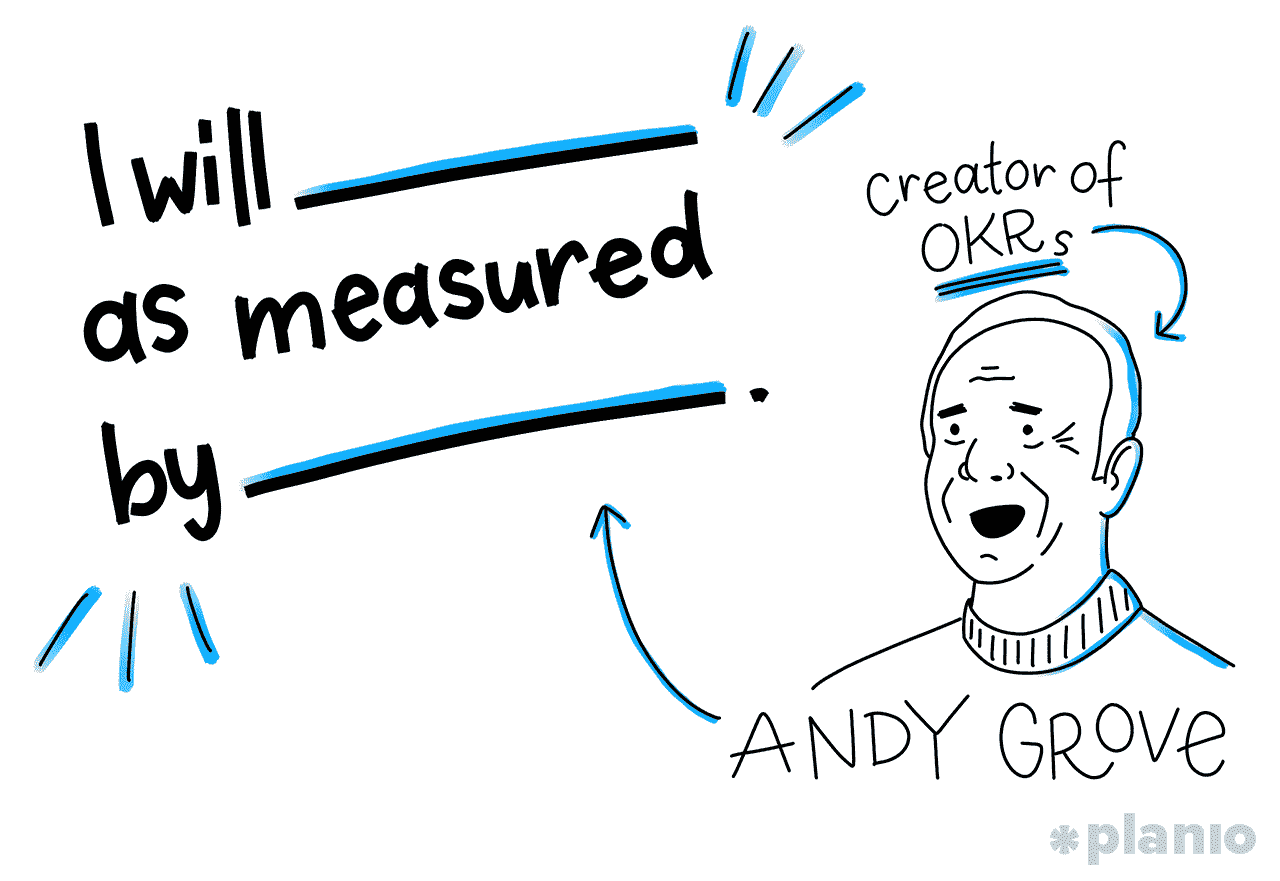 I will
as measured
by .
creator of
OKRs
ANDY GROVE
*planio